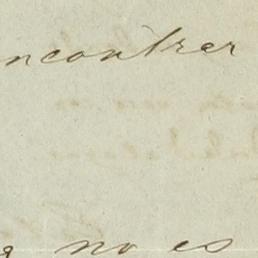 ncontrer
no es